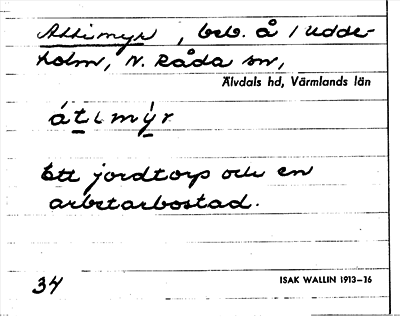 Attimyr, beb. å 1 Udde-
holm, N. Råda sn,
Älvdals hd, Värmlands län
átimýr
Ett jordtorp och en
arbetarbostad.
34
ISAK WALLIN 1913–16